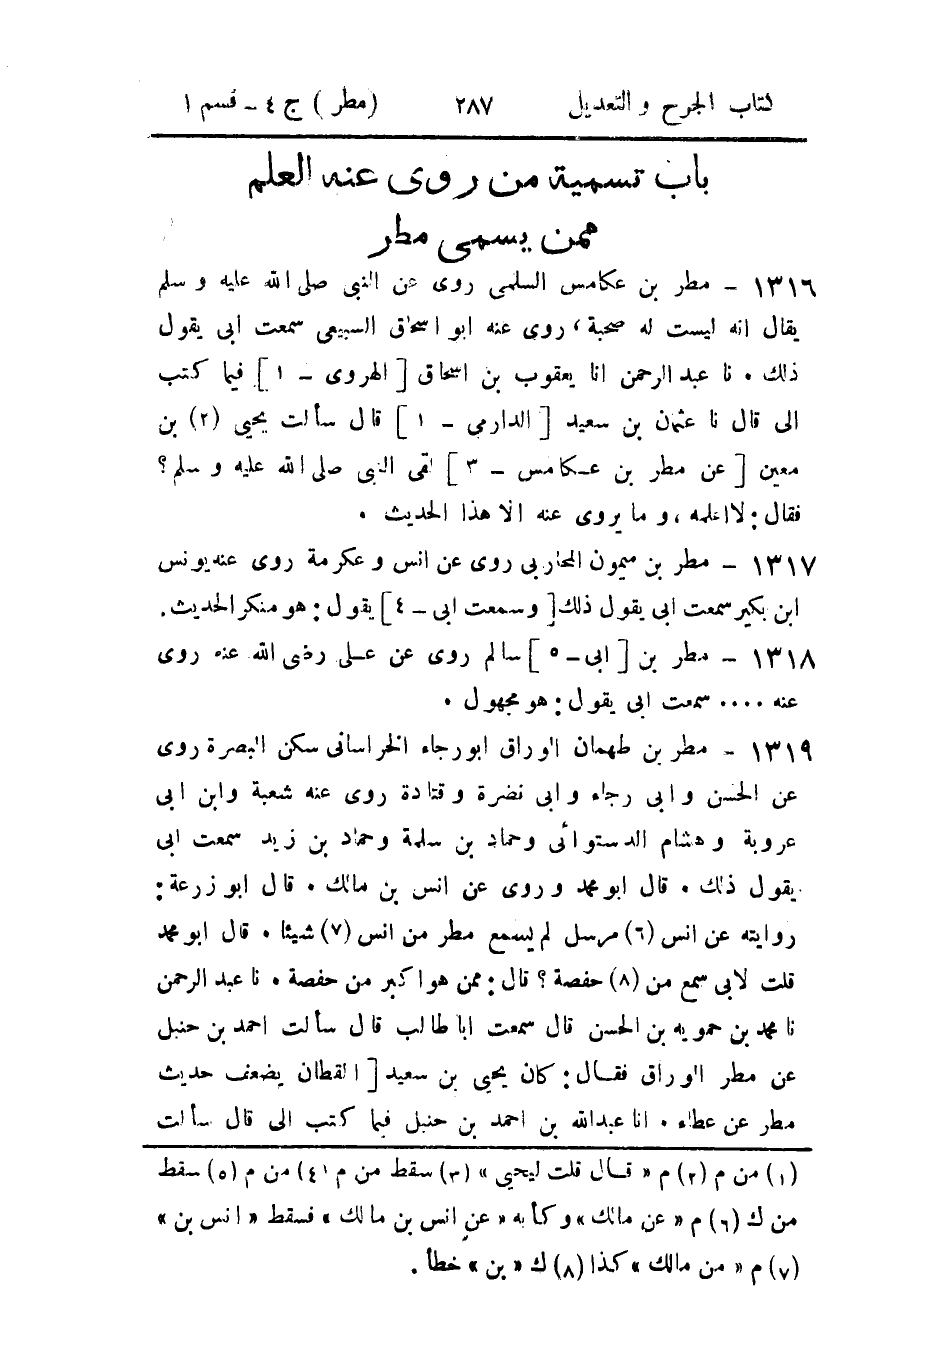 كتاب الجرح والتعديل ٢٨٧ (مطر) ج ٤ - قسم ١
باب تسمية من روى عنه العلم
ممن يسمى مطر
١٣١٦ - مطر بن عكامس السلمى روى عن النبى صلى الله عليه وسلم
يقال انه ليست له صحبة، روى عنه ابو اسحاق السبيعى سمعت ابى يقول
ذلك . نا عبد الرحمن انا يعقوب بن اسحاق [ الهروى - ١ ] فيما كتب
الى قال نا عثمان بن سعيد [ الدارمى - ١ ] قال سألت يحيى (٢) بن
معين [ عن مطر بن عكامس - ٣ ] لقى النبى صلى الله عليه وسلم؟
فقال: لا اعلمه، وما يروى عنه الا هذا الحديث .
١٣١٧ - مطر بن ميمون المحاربى روى عن انس وعكرمة روى عنه يونس
ابن بكير سمعت ابى يقول ذلك [ وسمعت ابى - ٤ ] يقول: هو منكر الحديث.
١٣١٨ - مطر بن [ ابى - ٥ ] سالم روى عن على رضى الله عنه روى
عنه .... سمعت ابى يقول: هو مجهول .
١٣١٩ - مطر بن طهمان الوراق ابو رجاء الخراسانى سكن البصرة روى
عن الحسن وابى رجاء وابى نضرة وقتادة روى عنه شعبة وابن ابى
عروبة وهشام الدستوائى وحماد بن سلمة وحماد بن زيد سمعت ابى
يقول ذلك . قال ابو محمد وروى عن انس بن مالك . قال ابو زرعة:
روايته عن انس (٦) مرسل لم يسمع مطر من انس (٧) شيئا . قال ابو محمد
قلت لابى سمع من (٨) حفصة؟ قال: ممن هو اكبر من حفصة . نا عبد الرحمن
نا محمد بن حمويه بن الحسن قال سمعت ابا طالب قال سألت احمد بن حنبل
عن مطر الوراق فقال: كان يحيى بن سعيد [ القطان يضعف حديث
مطر عن عطاء . انا عبد الله بن احمد بن حنبل فيما كتب الى قال سألت
(١) من م (٢) م « قال قلت ليحيى » (٣) سقط من م (٤) من م (٥) سقط
من ك (٦) م « عن مالك » وكأنه « عن انس بن مالك » فسقط « انس بن »
(٧) م « من مالك » كذا (٨) ك « بن » خطأ .